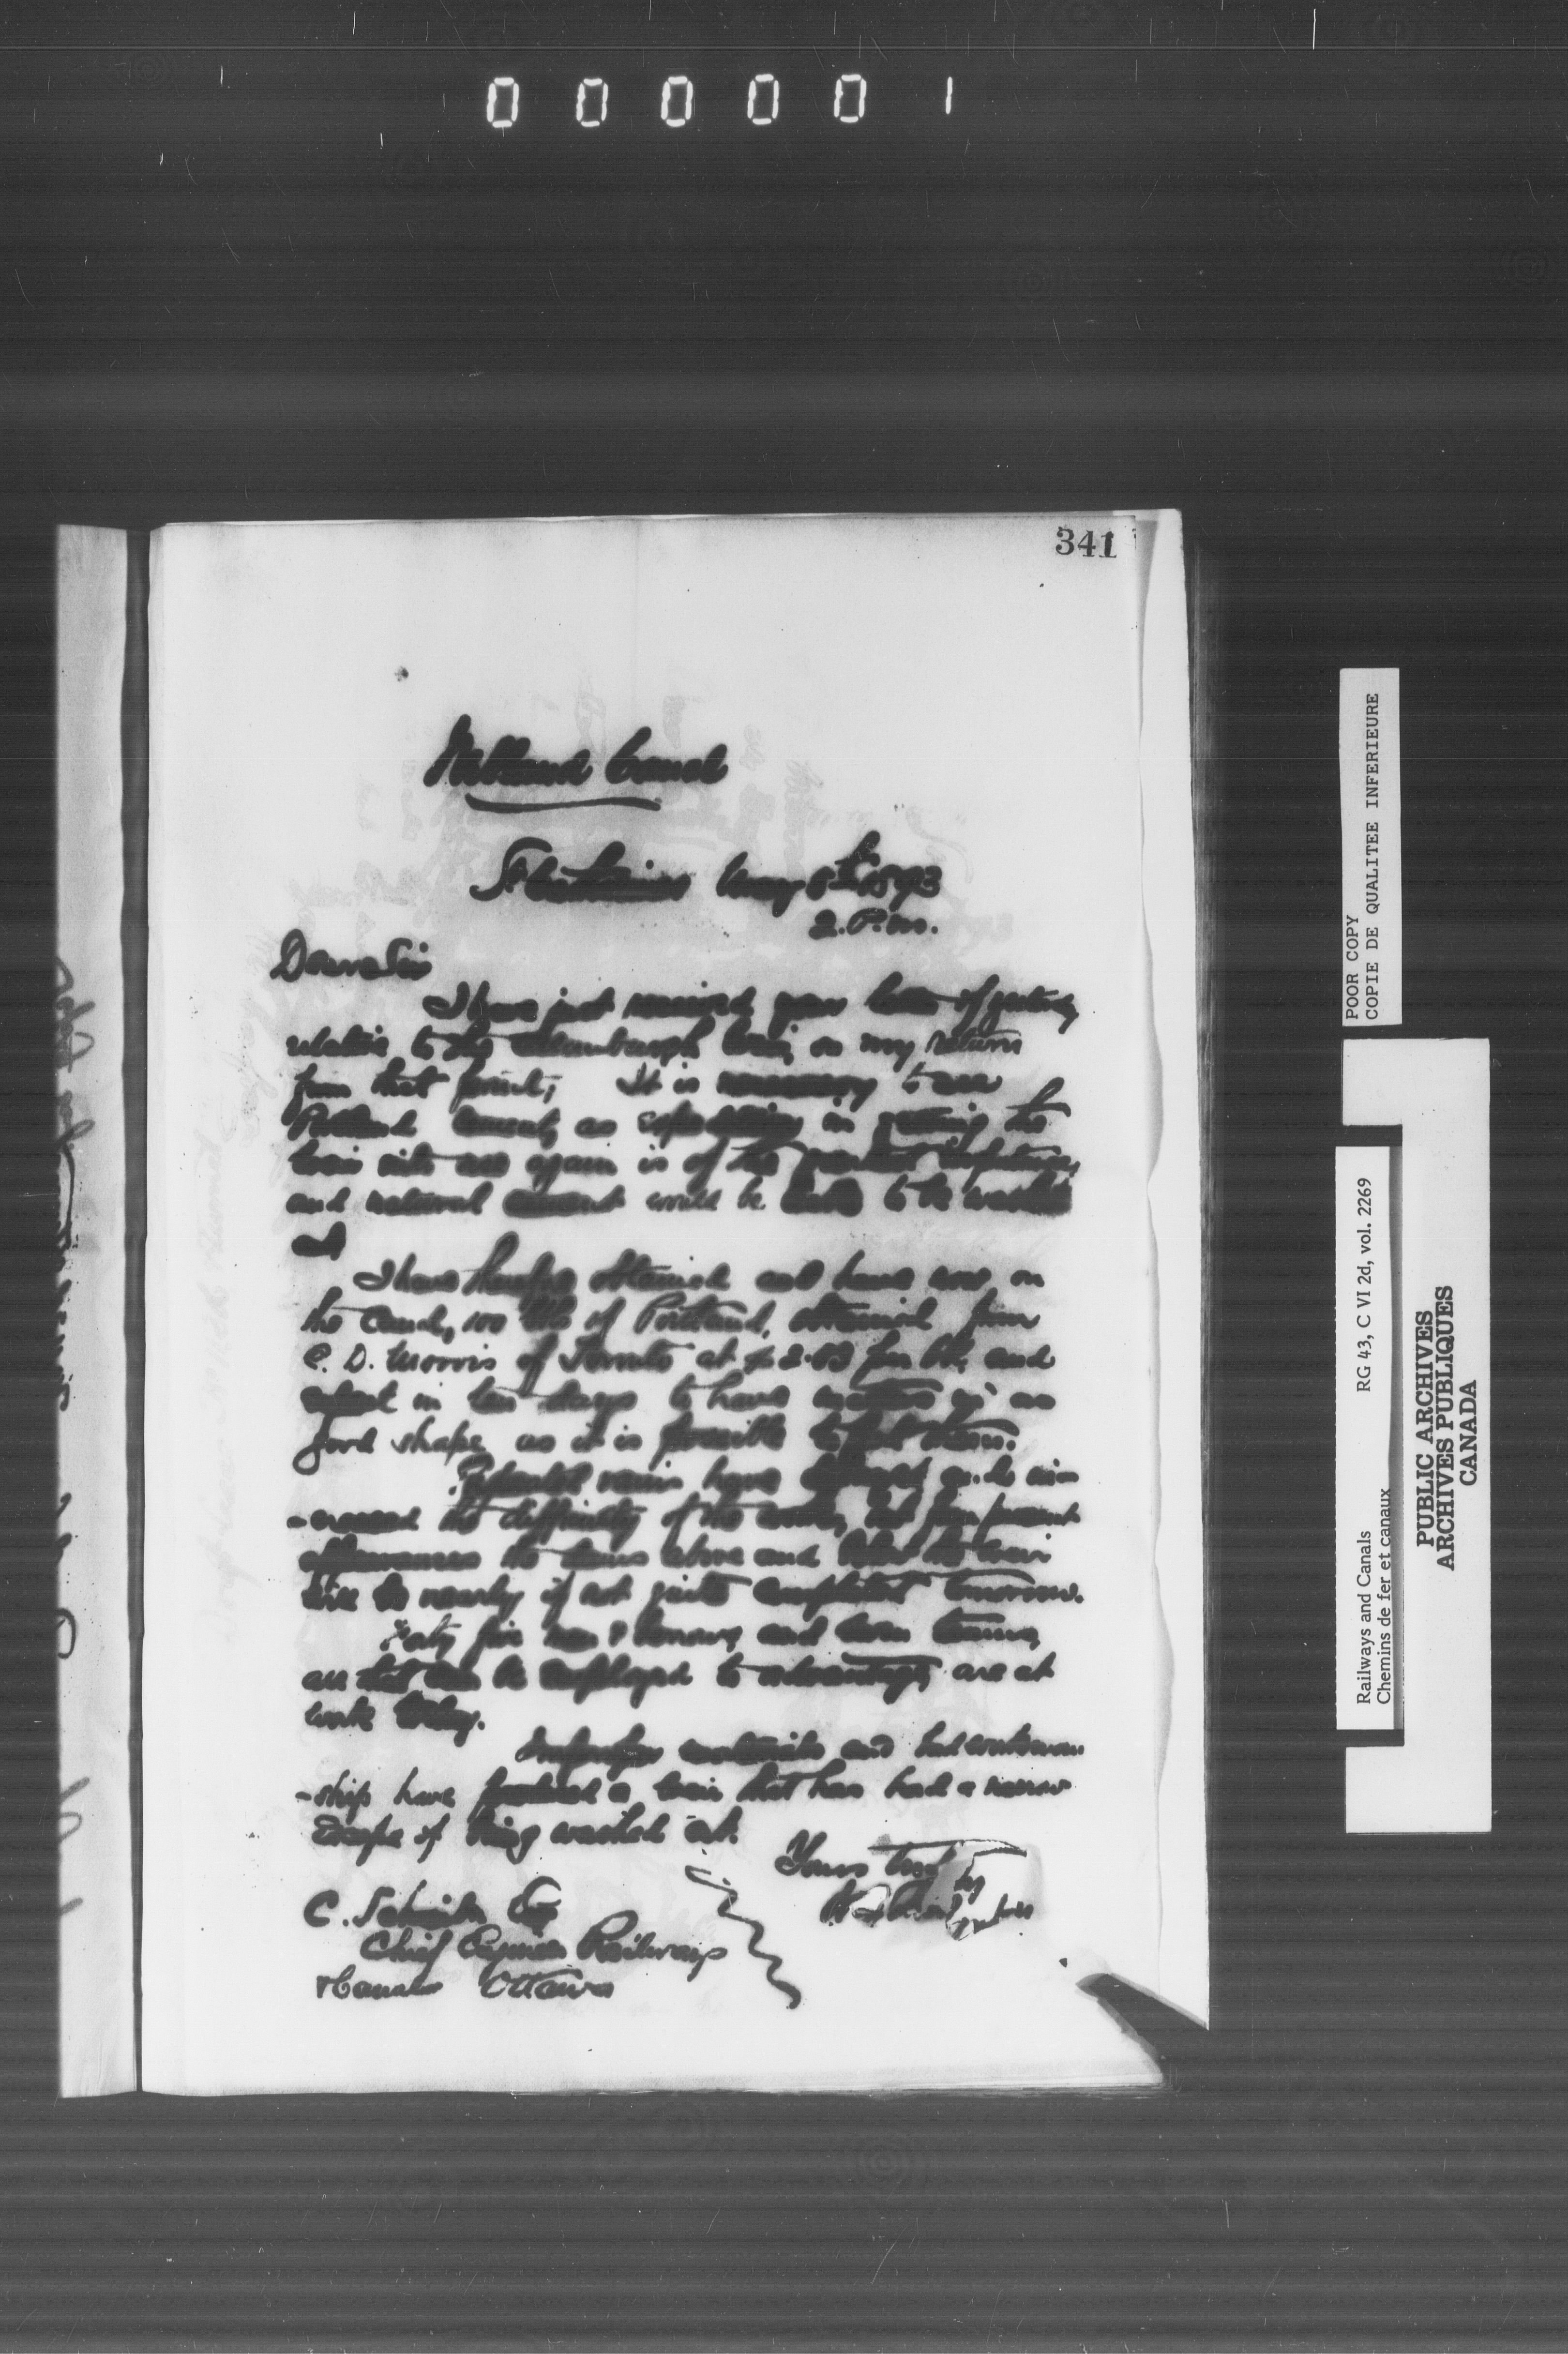 000001
341
Welland Canal
St Catharines May 8th 1893
2. P.m.
Dear Sir
I have just received your letter of yesterday
relative to the weir, on my return
from that point; It is necessary to use
Portland cement, as expedition in getting the
weir into use again is of the greatest importance,
and natural cement would be liable to be washed
out
I have therefore obtained and have now on
the Canal, 100 bbls of Portland, obtained from
C. D. Morris of Toronto at $ per bbl, and
expect in ten days to have matters in as
good shape as it is possible to put them.
Repeated rains have delayed and in-
-creased the difficulty of the work, but from present
appearances the dams above and below the weir
will be nearly if not quite completed tomorrow.
Forty five men & and teams,
all that can be employed to advantage, are at
work today.
Improper materials and bad workman
-ship have produced a weir that has had a narrow
Escape of being washed out.
Yours truly
C. Schreiber Esq
Chief Engineer Railways
& Canals Ottawa
POOR COPY
COPIE DE QUALITEE INFERIEURE
Railways and Canals RG 43, C VI 2d, vol. 2269
Chemins de fer et canaux
PUBLIC ARCHIVES
ARCHIVES PUBLIQUES
CANADA